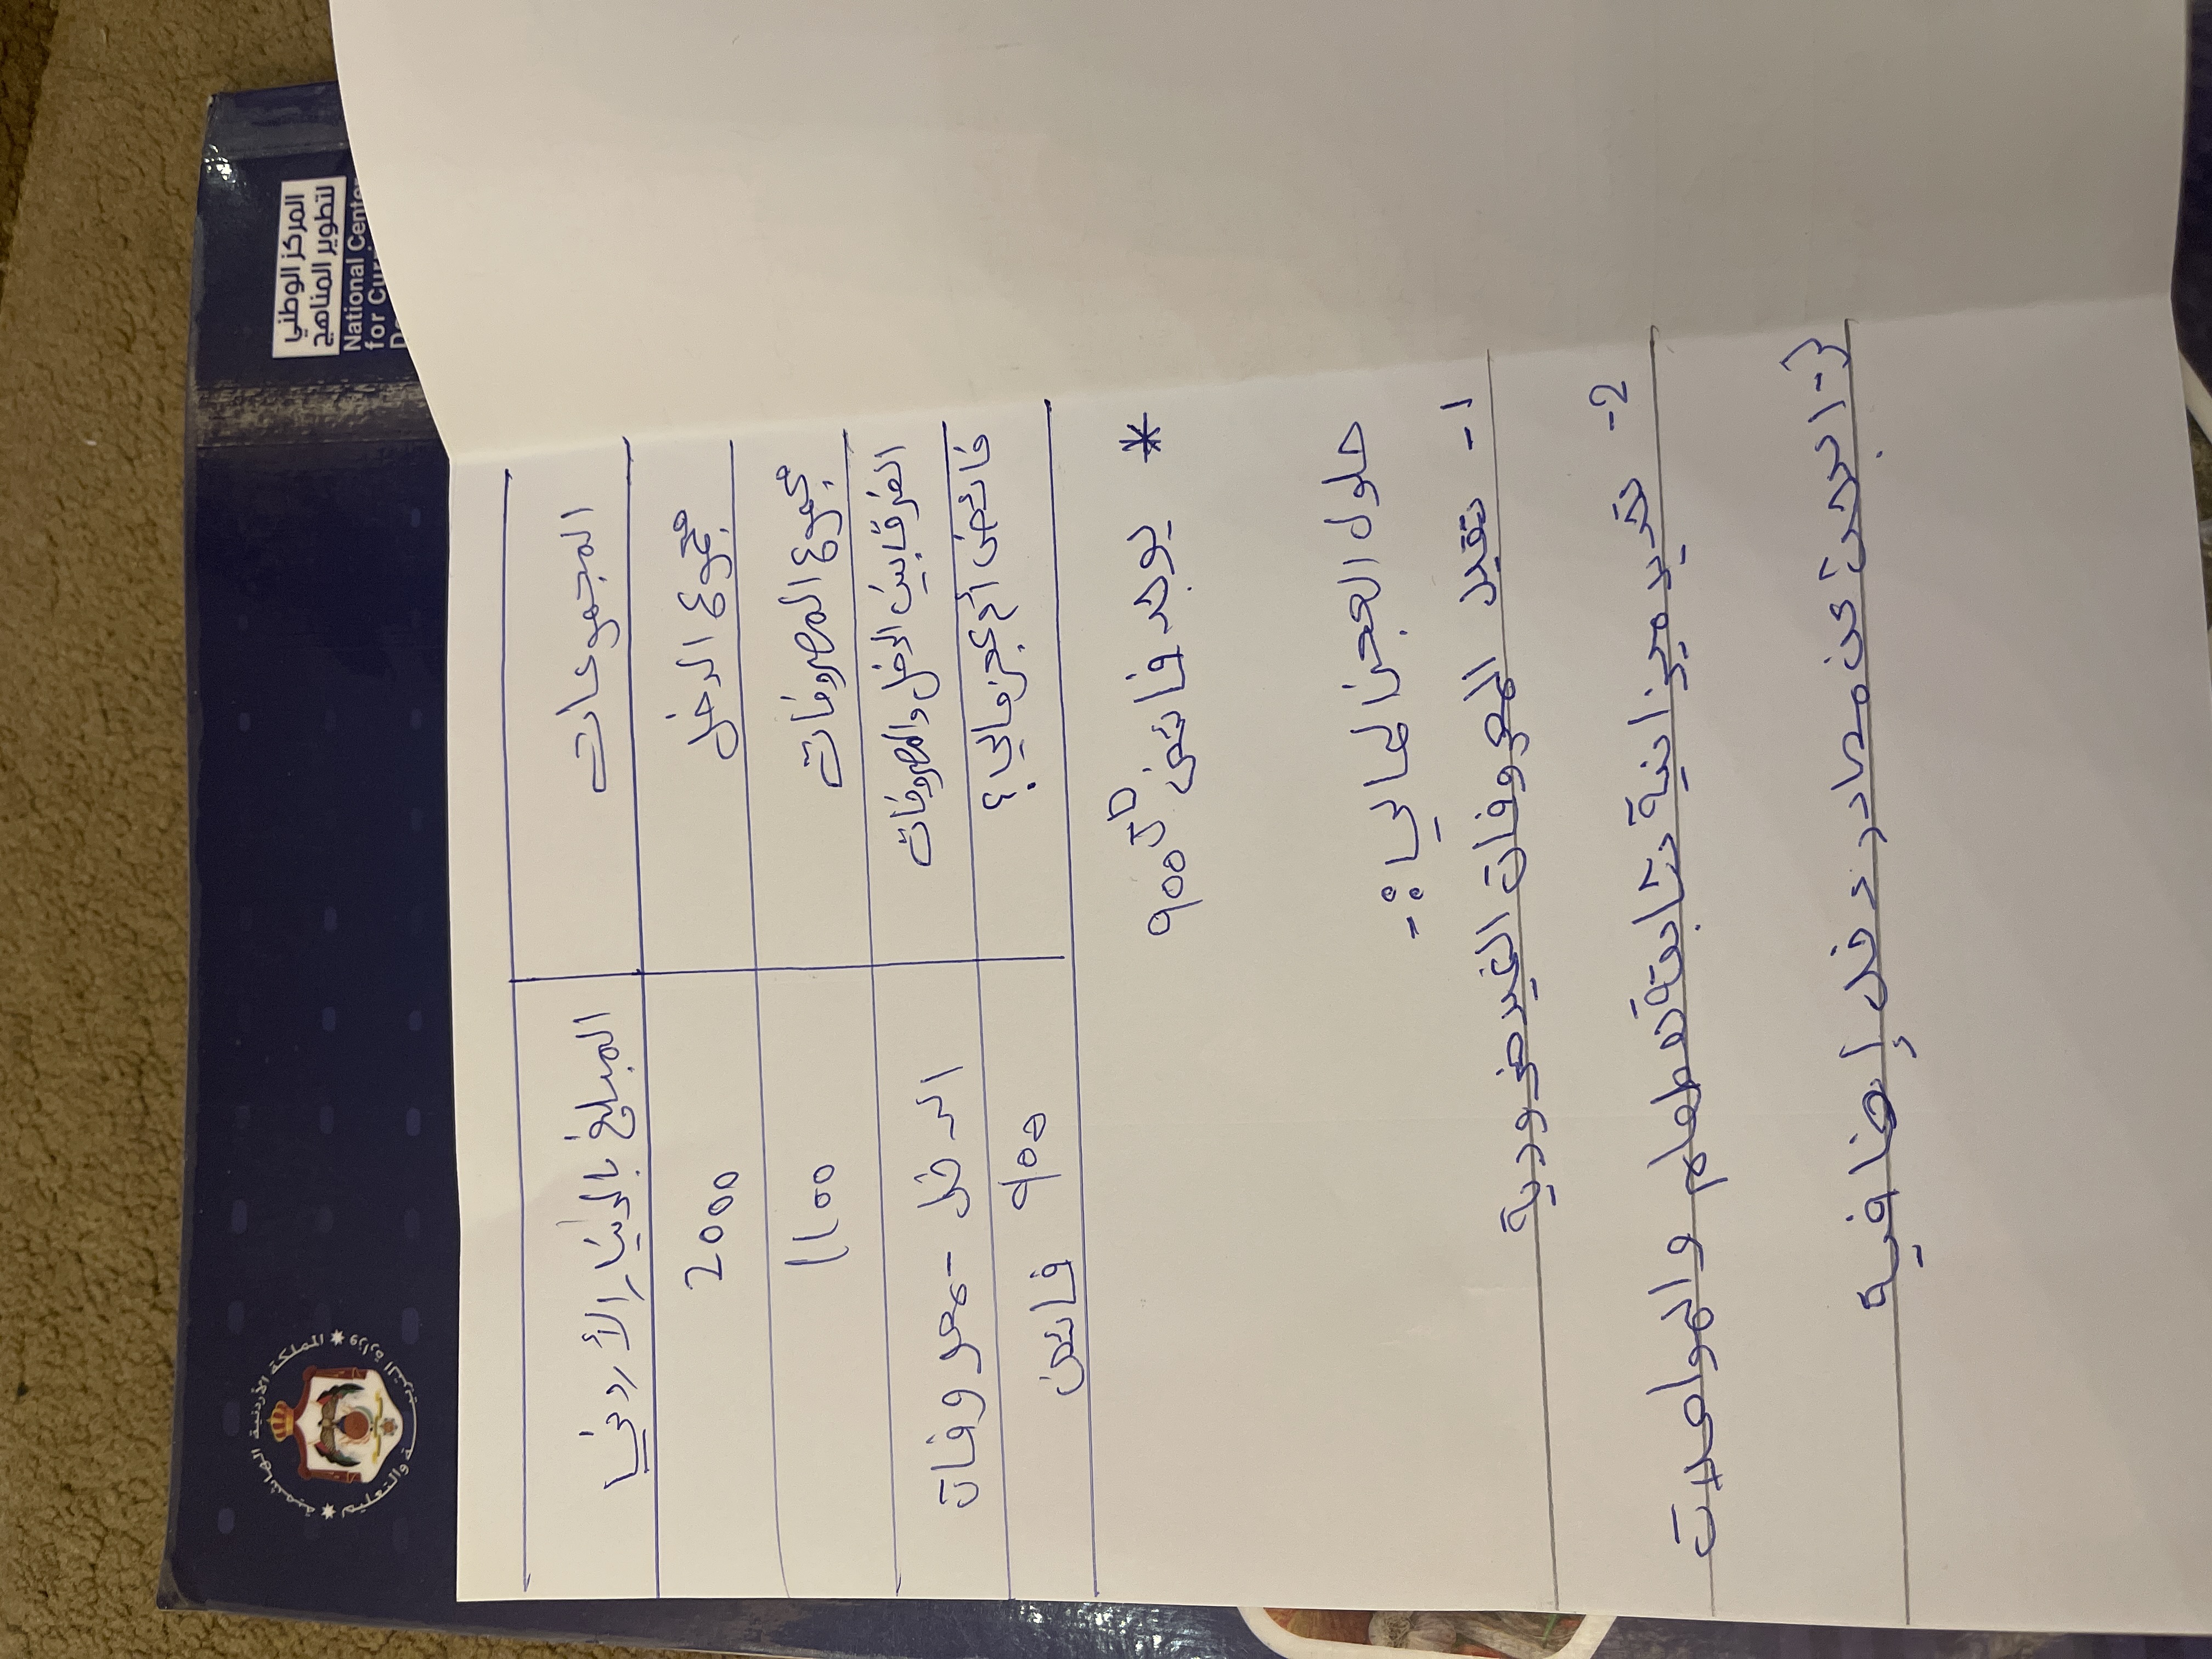 المركز الوطني
لتطوير المناهج
National Center
for Curr
المملكة الأردنية الهاشمية
وزارة التربية والتعليم
المجموعات المبلغ بالدينار الأردني
مجموع الدخل 2000
مجموع المصروفات 1100
الفرق بين الدخل والمصروفات الدخل - مصروفات
فائض أم عجز مالي؟ فائض 900
* يوجد فائض 900
حلول العجز المالي :-
1- تقليل المصروفات الغير ضرورية
2- ترميز ميزانية
والمواصلات
3- البحث عن مصادر دخل إضافية